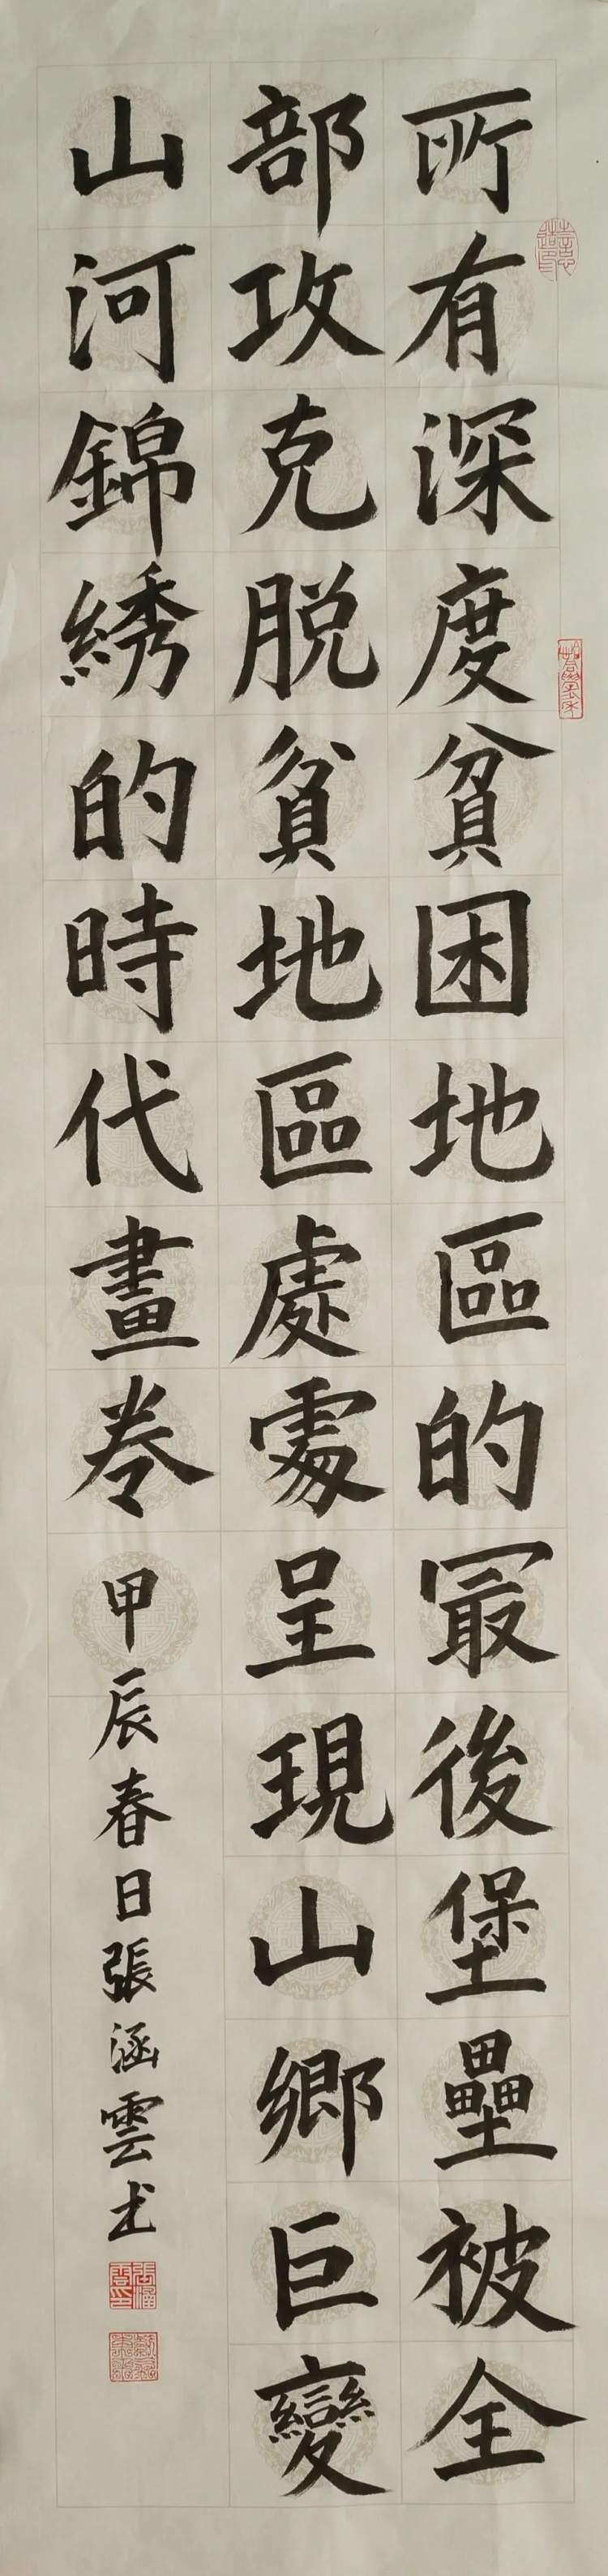 所有深度貧困地區的冣後堡壘被全
部攻克脱貧地區處處呈現山鄉巨變
山河錦綉的時代畫卷
甲辰春日張涵雲书